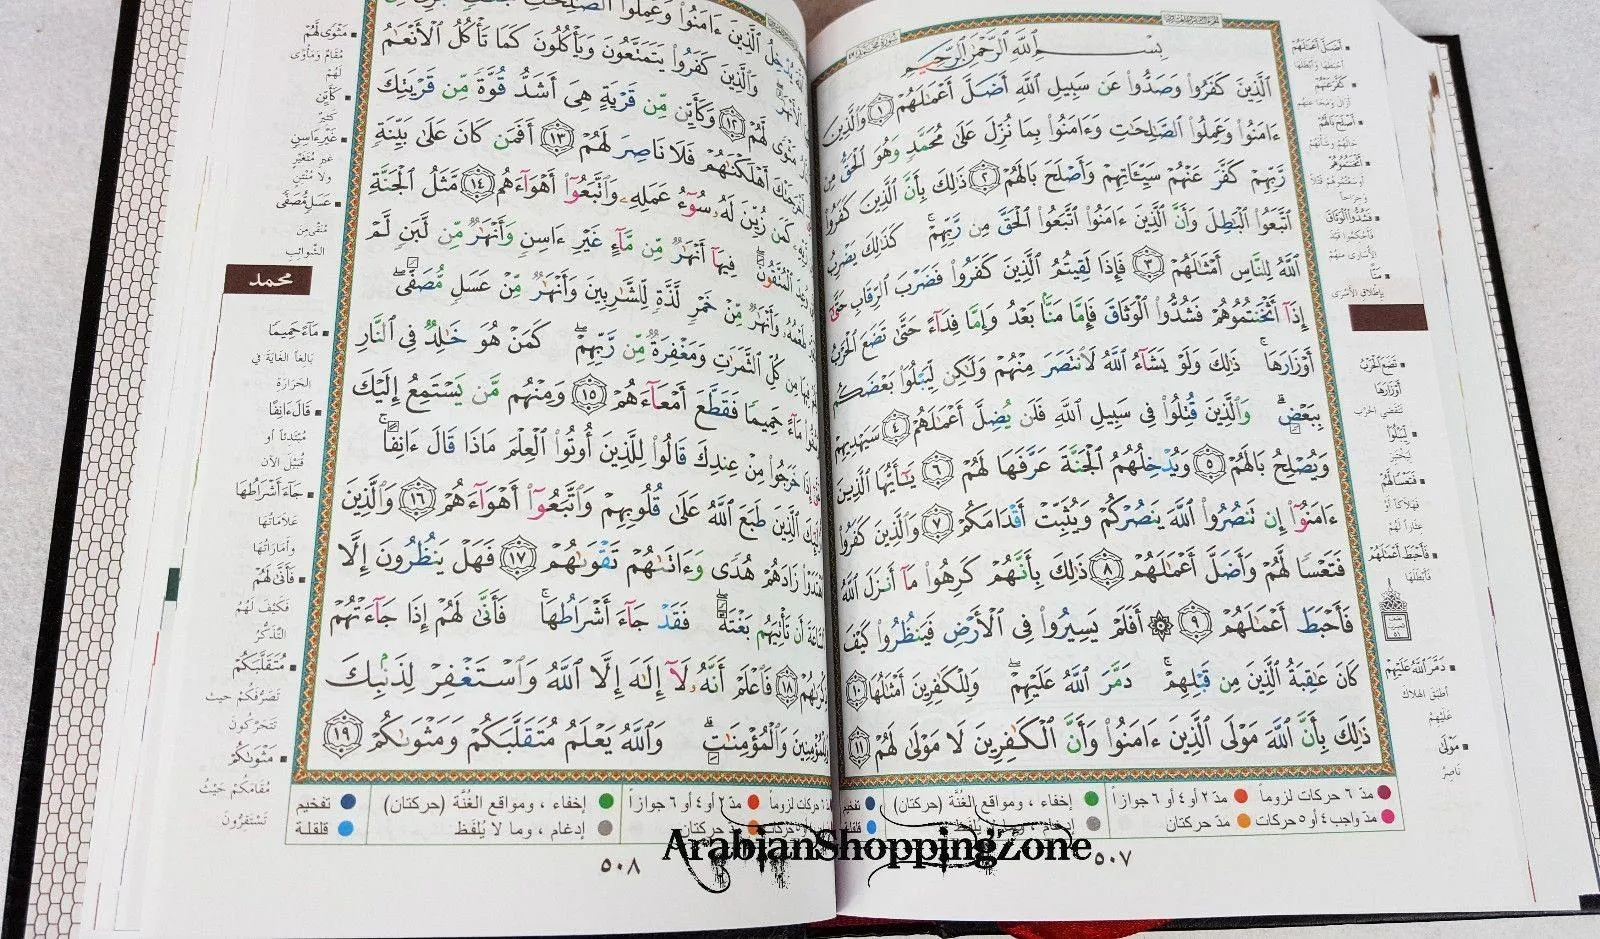 بِسْمِ اللَّهِ الرَّحْمَٰنِ الرَّحِيمِ
الَّذِينَ كَفَرُوا وَصَدُّوا عَن سَبِيلِ اللَّهِ أَضَلَّ أَعْمَالَهُمْ ١ وَالَّذِينَ
ءَامَنُوا وَعَمِلُوا الصَّالِحَاتِ وَءَامَنُوا بِمَا نُزِّلَ عَلَىٰ مُحَمَّدٍ وَهُوَ الْحَقُّ مِن
رَّبِّهِمْ كَفَّرَ عَنْهُمْ سَيِّئَاتِهِمْ وَأَصْلَحَ بَالَهُمْ ٢ ذَٰلِكَ بِأَنَّ الَّذِينَ كَفَرُوا
اتَّبَعُوا الْبَاطِلَ وَأَنَّ الَّذِينَ ءَامَنُوا اتَّبَعُوا الْحَقَّ مِن رَّبِّهِمْ ۚ كَذَٰلِكَ يَضْرِبُ
اللَّهُ لِلنَّاسِ أَمْثَالَهُمْ ٣ فَإِذَا لَقِيتُمُ الَّذِينَ كَفَرُوا فَضَرْبَ الرِّقَابِ حَتَّىٰ
إِذَا أَثْخَنتُمُوهُمْ فَشُدُّوا الْوَثَاقَ فَإِمَّا مَنًّا بَعْدُ وَإِمَّا فِدَاءً حَتَّىٰ تَضَعَ الْحَرْبُ
أَوْزَارَهَا ۚ ذَٰلِكَ وَلَوْ يَشَاءُ اللَّهُ لَانتَصَرَ مِنْهُمْ وَلَٰكِن لِّيَبْلُوَا بَعْضَكُم
بِبَعْضٍ ۗ وَالَّذِينَ قُتِلُوا فِي سَبِيلِ اللَّهِ فَلَن يُضِلَّ أَعْمَالَهُمْ ٤ سَيَهْدِيهِمْ
وَيُصْلِحُ بَالَهُمْ ٥ وَيُدْخِلُهُمُ الْجَنَّةَ عَرَّفَهَا لَهُمْ ٦ يَا أَيُّهَا الَّذِينَ
ءَامَنُوا إِن تَنصُرُوا اللَّهَ يَنصُرْكُمْ وَيُثَبِّتْ أَقْدَامَكُمْ ٧ وَالَّذِينَ كَفَرُوا
فَتَعْسًا لَّهُمْ وَأَضَلَّ أَعْمَالَهُمْ ٨ ذَٰلِكَ بِأَنَّهُمْ كَرِهُوا مَا أَنزَلَ اللَّهُ
فَأَحْبَطَ أَعْمَالَهُمْ ٩ ۞ أَفَلَمْ يَسِيرُوا فِي الْأَرْضِ فَيَنظُرُوا كَيْفَ
كَانَ عَاقِبَةُ الَّذِينَ مِن قَبْلِهِمْ ۚ دَمَّرَ اللَّهُ عَلَيْهِمْ ۖ وَلِلْكَافِرِينَ أَمْثَالُهَا ١٠
ذَٰلِكَ بِأَنَّ اللَّهَ مَوْلَى الَّذِينَ ءَامَنُوا وَأَنَّ الْكَافِرِينَ لَا مَوْلَىٰ لَهُمْ ١١
أَضَلَّ أَعْمَالَهُمْ
كَفَّرَ عَنْهُمْ
أَصْلَحَ بَالَهُمْ
أَثْخَنتُمُوهُمْ
فَشُدُّوا الْوَثَاقَ
مَنًّا
بإطلاق الأسرى
تَضَعَ الْحَرْبُ
أَوْزَارَهَا
تنقضي الحرب
لِيَبْلُوَا
ليختبر
فَتَعْسًا لَّهُمْ
فَأَحْبَطَ أَعْمَالَهُمْ
فأبطلها
دَمَّرَ اللَّهُ عَلَيْهِمْ
أطبق الهلاك
عليهم
مَوْلَى
ناصر
مدّ ٦ حركات لزوماً مدّ ٢ أو ٤ أو ٦ جوازاً إخفاء ، ومواقع الغنّة (حركتان) تفخيم
مدّ واجب ٤ أو ٥ حركات مدّ حركتان
٥٠٧
يُدْخِلُ الَّذِينَ ءَامَنُوا وَعَمِلُوا الصَّالِحَاتِ
وَالَّذِينَ كَفَرُوا يَتَمَتَّعُونَ وَيَأْكُلُونَ كَمَا تَأْكُلُ الْأَنْعَامُ
مَثْوًى لَّهُمْ ١٢ وَكَأَيِّن مِّن قَرْيَةٍ هِيَ أَشَدُّ قُوَّةً مِّن قَرْيَتِكَ
أَهْلَكْنَاهُمْ فَلَا نَاصِرَ لَهُمْ ١٣ أَفَمَن كَانَ عَلَىٰ بَيِّنَةٍ
كَمَن زُيِّنَ لَهُ سُوءُ عَمَلِهِ وَاتَّبَعُوا أَهْوَاءَهُم ١٤ مَّثَلُ الْجَنَّةِ
الْمُتَّقُونَ ۖ فِيهَا أَنْهَارٌ مِّن مَّاءٍ غَيْرِ ءَاسِنٍ وَأَنْهَارٌ مِّن لَّبَنٍ لَّمْ
وَأَنْهَارٌ مِّنْ خَمْرٍ لَّذَّةٍ لِّلشَّارِبِينَ وَأَنْهَارٌ مِّنْ عَسَلٍ مُّصَفًّى ۖ
مِن كُلِّ الثَّمَرَاتِ وَمَغْفِرَةٌ مِّن رَّبِّهِمْ ۖ كَمَنْ هُوَ خَالِدٌ فِي النَّارِ
مَاءً حَمِيمًا فَقَطَّعَ أَمْعَاءَهُمْ ١٥ وَمِنْهُم مَّن يَسْتَمِعُ إِلَيْكَ
إِذَا خَرَجُوا مِنْ عِندِكَ قَالُوا لِلَّذِينَ أُوتُوا الْعِلْمَ مَاذَا قَالَ ءَانِفًا ۚ
الَّذِينَ طَبَعَ اللَّهُ عَلَىٰ قُلُوبِهِمْ وَاتَّبَعُوا أَهْوَاءَهُمْ ١٦ وَالَّذِينَ
زَادَهُمْ هُدًى وَءَاتَاهُمْ تَقْوَاهُمْ ١٧ فَهَلْ يَنظُرُونَ إِلَّا
أَن تَأْتِيَهُم بَغْتَةً ۖ فَقَدْ جَاءَ أَشْرَاطُهَا ۚ فَأَنَّىٰ لَهُمْ إِذَا جَاءَتْهُمْ
ذِكْرَاهُمْ ١٨ فَاعْلَمْ أَنَّهُ لَا إِلَٰهَ إِلَّا اللَّهُ وَاسْتَغْفِرْ لِذَنبِكَ
وَلِلْمُؤْمِنِينَ وَالْمُؤْمِنَاتِ ۗ وَاللَّهُ يَعْلَمُ مُتَقَلَّبَكُمْ وَمَثْوَاكُمْ ١٩
مَثْوًى لَّهُمْ
مُقام ومأوى
لهم
كَأَيِّن
كثير
غَيْرِ ءَاسِنٍ
غير متغير
ولا منتن
عَسَلٍ مُّصَفًّى
منقى من
الشوائب
محمد
مَاءً حَمِيمًا
بالغاً الغاية في
الحرارة
قَالَ ءَانِفًا
مبتدئاً أو
قبيل الآن
جَاءَ أَشْرَاطُهَا
علاماتها
وأماراتها
فَأَنَّىٰ لَهُمْ
فكيف لهم
التذكر
مُتَقَلَّبَكُمْ
تصرفكم حيث
تتحركون
مَثْوَاكُمْ
مقامكم حيث
تستقرون
مدّ ٢ أو ٤ أو ٦ جوازاً إخفاء ، ومواقع الغنّة (حركتان) تفخيم
إدغام ، وما لا يُلفظ قلقلة
٥٠٨
ArabianShoppingZone